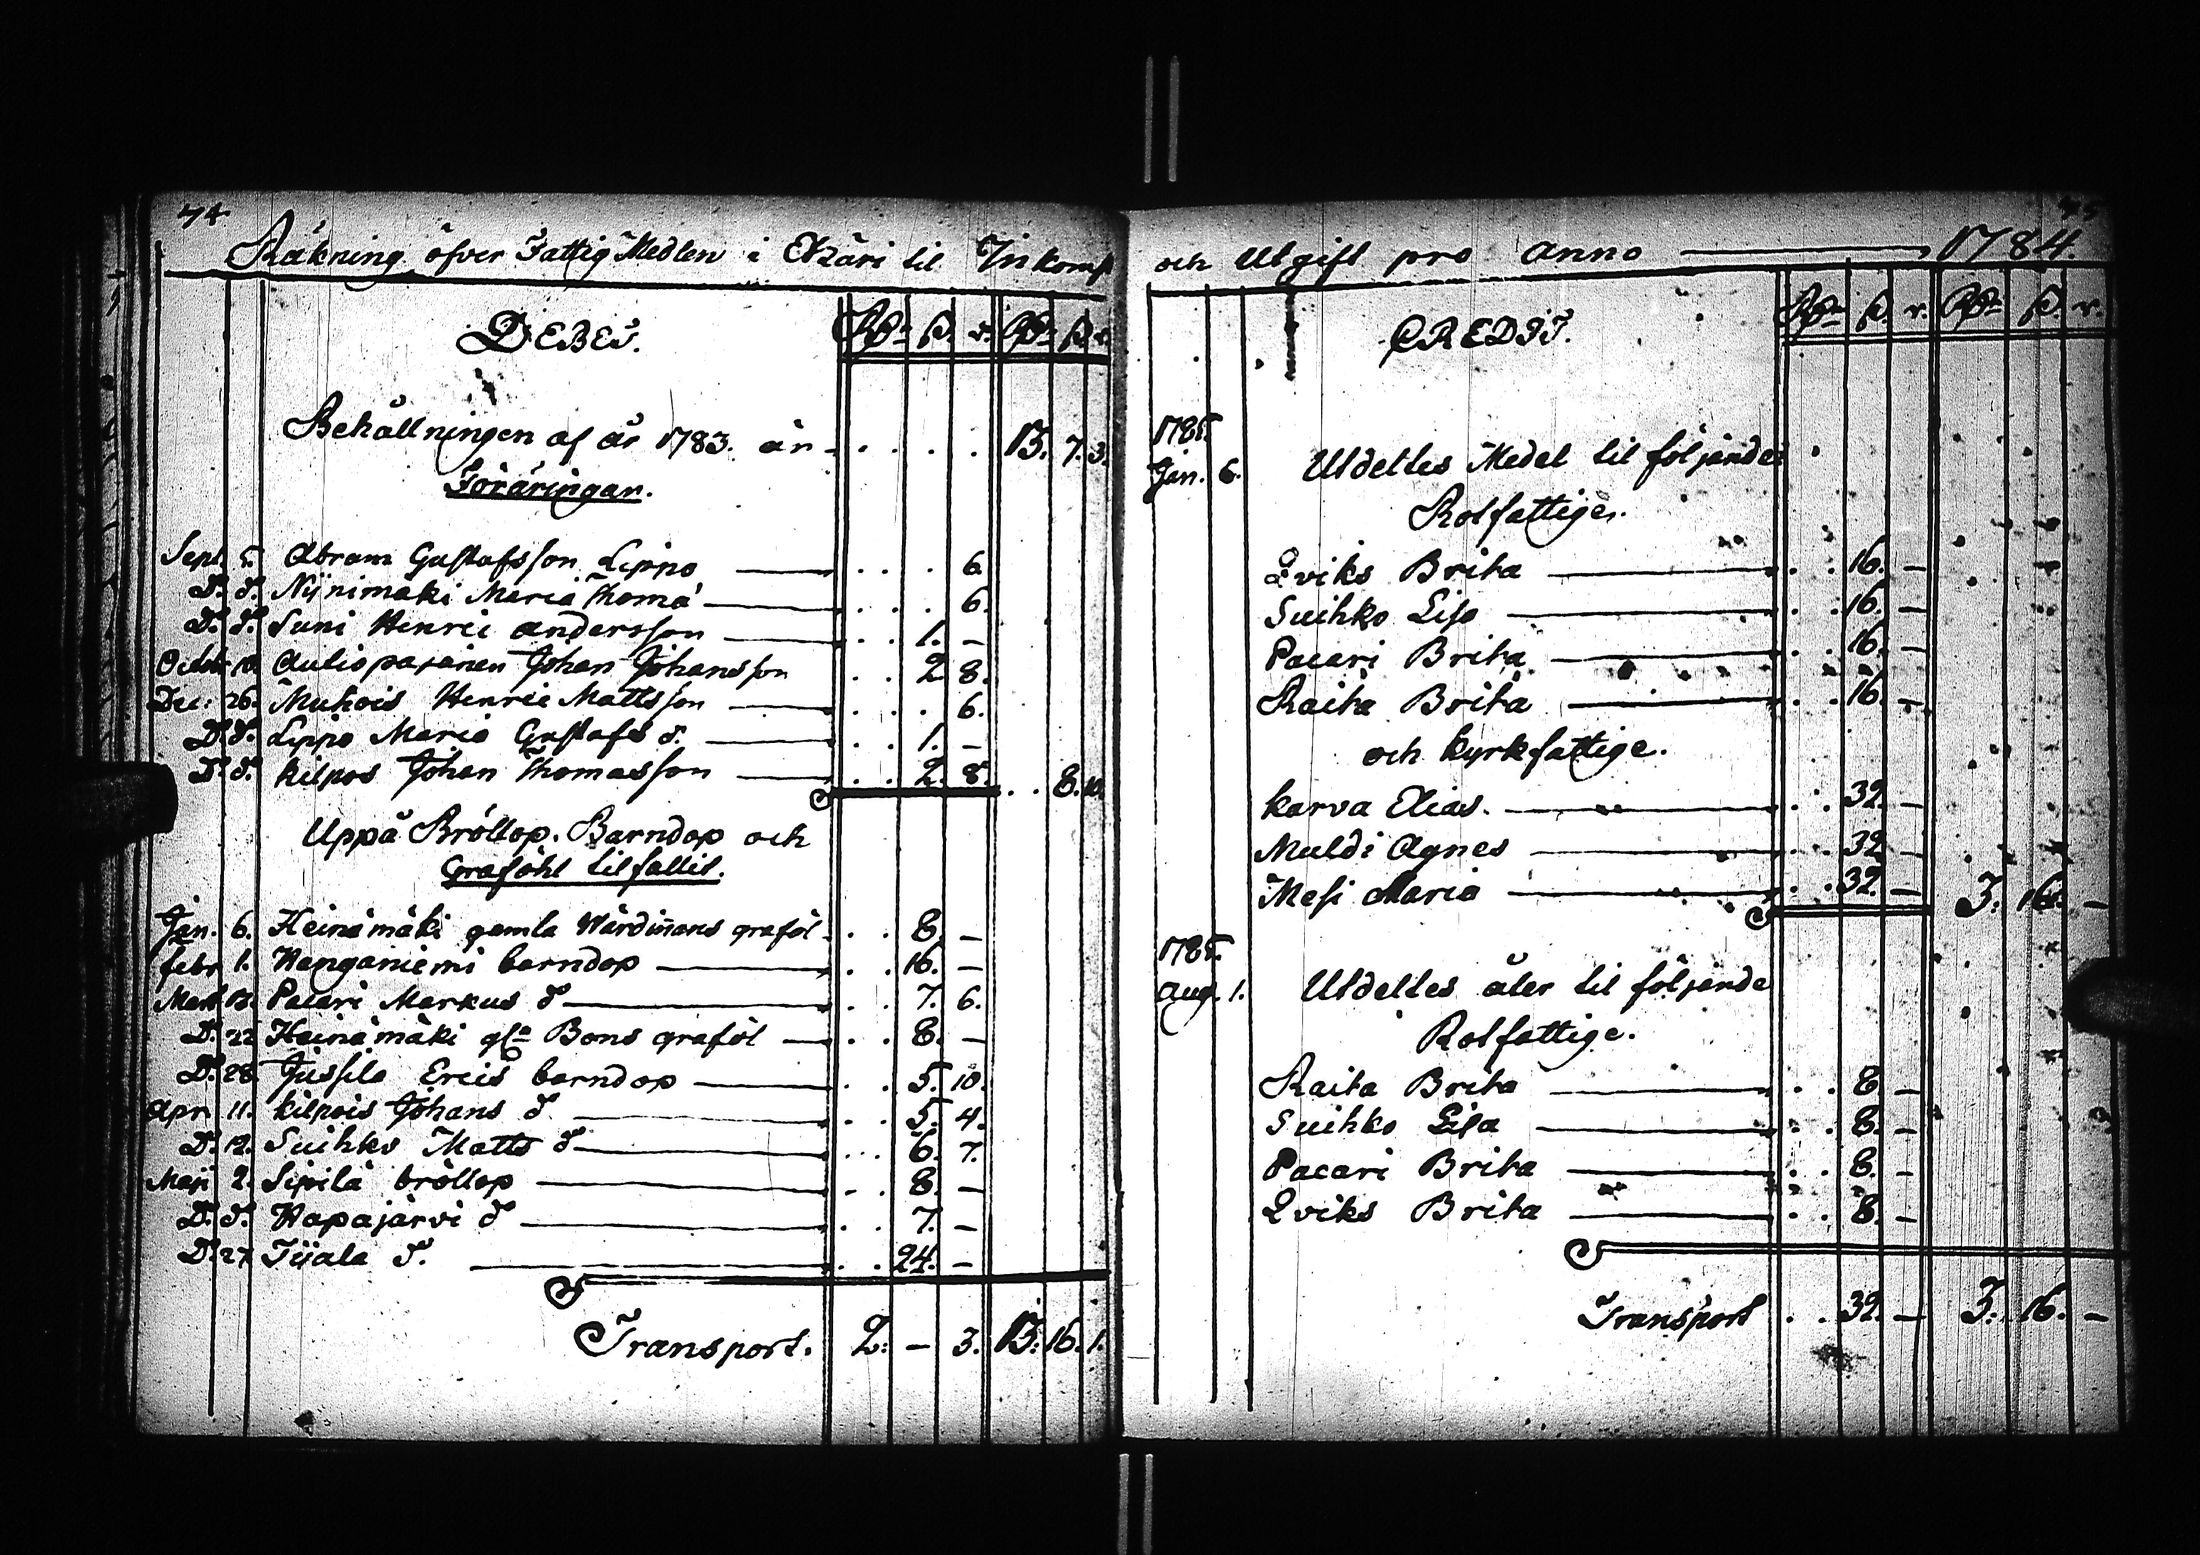 74
Räkning öfver Fattig Medlen i Etzäri til Inkomst
DEBET. Rdr ß. r. Rdr ß. r.
Behållningen af år 1783. är . . . . 13. 7. 3.
Föräringar.
Sept. 5. Abram Gustafsson Lippo . . . 6.
D:o d:o Nijnimäki Maria Thoma . . . 6.
D:o d:o Suni Henric Andersson . . 1. –
Octob. 10. Auliopajanen Johan Johansson . . 2 8.
Dec: 26. Muhois Henric Mattsson . . . 6.
D:o d:o Lippo Maria Gustafs d. . . 1. –
D:o d:o Kilpos Johan Thomasson . . 2. 8. . . 8. 10.
Uppå Bröllop. Barndop och
Graföhl tilfallit.
Jan. 6. Heinämäki gamla Wärdinnans graföl . . 8. –
Febr. 1. Hanganiemi barndop . . 16. –
Mart. 13. Pacari Markus d:o . . 7. 6.
D:o 22 Heinämäki gla Bons graföl . . 8. –
D:o 28. Jussila Ercis barndop . . 5. 10.
Apr. 11. Kilpois Johans d:o . . 5. 4.
D:o 12. Suihko Matts d:o . . . 6. 7.
Maji 2. Sipilä bröllop . . 8. –
D:o d:o Hapajärvi d:o . . 7. –
D:o 27 Tijala d:o . . 24. –
Transport. 2: – 3. 13: 16. 1.
75
och Utgift pro Anno 1784.
CREDIT. Rdr ß. r. Rdr ß. r.
1785.
Jan. 6. Utdeltes Medel til följande
Rotfattige.
Qviks Brita . . 16. –
Suihko Lisa . . 16. –
Pacari Brita . . 16. –
Raita Brita . . 16. –
och Kyrkfattige.
Karva Elias. . . 32. –
Muldi Agnes . . 32 –
Mesi Maria . . 32. – 3. 16. –
1785.
Aug. 1. Utdeltes åter til följande
Rotfattige.
Raita Brita . . 8 –
Suihko Lisa . . 8. –
Pacari Brita . . 8. –
Qviks Brita . . 8. –
Transport . . 32. – 3. 16. –